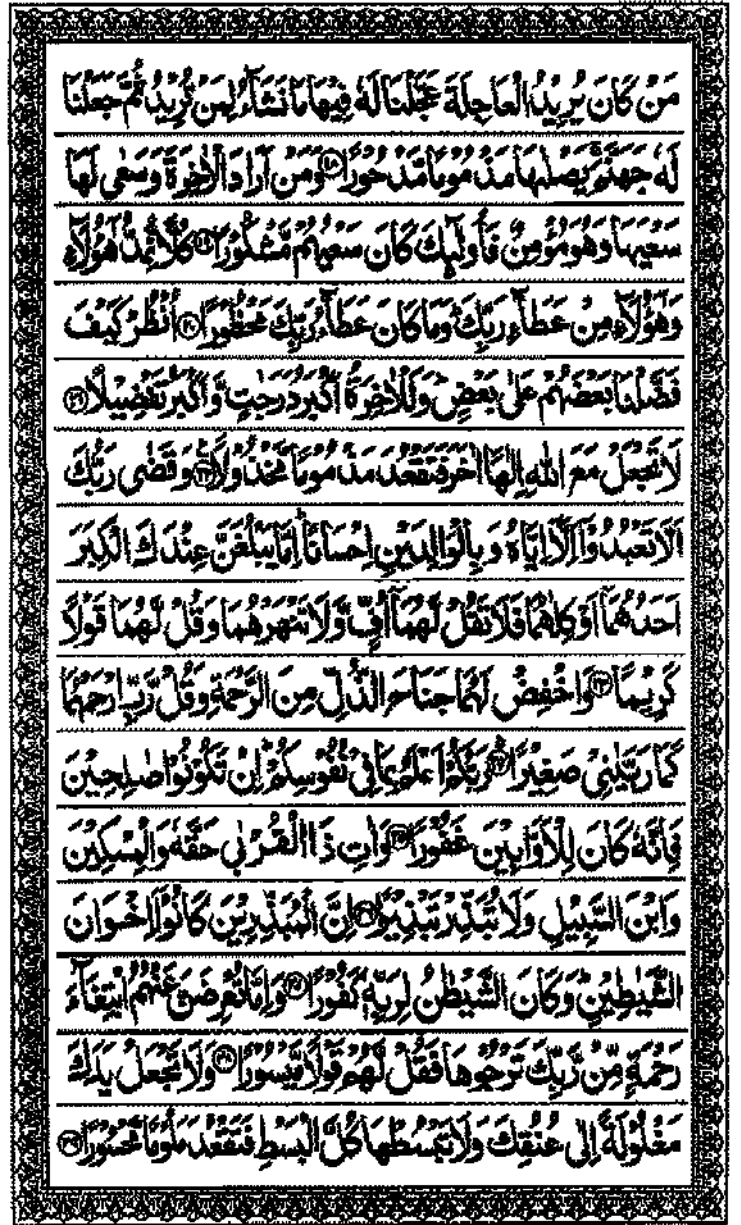 مَنْ كَانَ يُرِيْدُ الْعَاجِلَةَ عَجَّلْنَا لَهٗ فِيْهَا مَا نَشَآءُ لِمَنْ نُّرِيْدُ ثُمَّ جَعَلْنَا
لَهٗ جَهَنَّمَۚ يَصْلٰىهَا مَذْمُوْمًا مَّدْحُوْرًا ۝۱۸ وَمَنْ اَرَادَ الْاٰخِرَةَ وَسَعٰى لَهَا
سَعْيَهَا وَهُوَ مُؤْمِنٌ فَاُولٰٓئِكَ كَانَ سَعْيُهُمْ مَّشْكُوْرًا ۝۱۹ كُلًّا نُّمِدُّ هٰٓؤُلَآءِ
وَهٰٓؤُلَآءِ مِنْ عَطَآءِ رَبِّكَؕ وَمَا كَانَ عَطَآءُ رَبِّكَ مَحْظُوْرًا ۝۲۰ اُنْظُرْ كَيْفَ
فَضَّلْنَا بَعْضَهُمْ عَلٰى بَعْضٍؕ وَلَلْاٰخِرَةُ اَكْبَرُ دَرَجٰتٍ وَّاَكْبَرُ تَفْضِيْلًا ۝۲۱
لَا تَجْعَلْ مَعَ اللّٰهِ اِلٰهًا اٰخَرَ فَتَقْعُدَ مَذْمُوْمًا مَّخْذُوْلًا ۝۲۲ وَقَضٰى رَبُّكَ
اَلَّا تَعْبُدُوْٓا اِلَّآ اِيَّاهُ وَبِالْوَالِدَيْنِ اِحْسَانًاؕ اِمَّا يَبْلُغَنَّ عِنْدَكَ الْكِبَرَ
اَحَدُهُمَآ اَوْ كِلٰهُمَا فَلَا تَقُلْ لَّهُمَآ اُفٍّ وَّلَا تَنْهَرْهُمَا وَقُلْ لَّهُمَا قَوْلًا
كَرِيْمًا ۝۲۳ وَاخْفِضْ لَهُمَا جَنَاحَ الذُّلِّ مِنَ الرَّحْمَةِ وَقُلْ رَّبِّ ارْحَمْهُمَا
كَمَا رَبَّيٰنِيْ صَغِيْرًا ۝۲۴ رَبُّكُمْ اَعْلَمُ بِمَا فِيْ نُفُوْسِكُمْؕ اِنْ تَكُوْنُوْا صٰلِحِيْنَ
فَاِنَّهٗ كَانَ لِلْاَوَّابِيْنَ غَفُوْرًا ۝۲۵ وَاٰتِ ذَا الْقُرْبٰى حَقَّهٗ وَالْمِسْكِيْنَ
وَابْنَ السَّبِيْلِ وَلَا تُبَذِّرْ تَبْذِيْرًا ۝۲۶ اِنَّ الْمُبَذِّرِيْنَ كَانُوْٓا اِخْوَانَ
الشَّيٰطِيْنِؕ وَكَانَ الشَّيْطٰنُ لِرَبِّهٖ كَفُوْرًا ۝۲۷ وَاِمَّا تُعْرِضَنَّ عَنْهُمُ ابْتِغَآءَ
رَحْمَةٍ مِّنْ رَّبِّكَ تَرْجُوْهَا فَقُلْ لَّهُمْ قَوْلًا مَّيْسُوْرًا ۝۲۸ وَلَا تَجْعَلْ يَدَكَ
مَغْلُوْلَةً اِلٰى عُنُقِكَ وَلَا تَبْسُطْهَا كُلَّ الْبَسْطِ فَتَقْعُدَ مَلُوْمًا مَّحْسُوْرًا ۝۲۹